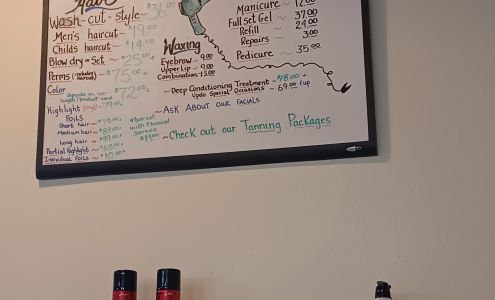 Hair
Wash-cut-style~ $36.00
Men's haircut~ $19.00
Child's haircut~ $14.00
Blow dry or Set ~ $25.00+
Perms (includes haircut) ~ $75.00+
Color depends on length/Product used $72.00+
Highlight (Cap) ~ $79.00+
Foils
Short hair ~ $79.00+
Medium hair ~ $89.00+
Long hair ~ $99.00+
+ haircut with Chemical Service $19.00
Partial Highlight ~
Individual Foils ~ $10.00+
Waxing
Eyebrow ~ 9.00
Upper Lip ~ 9.00
Combination ~ 15.00
Manicure ~
Full Set Gel ~ 37.00
Refill
Repairs ~ 3.00
Pedicure ~ 35.00
~Deep Conditioning Treatment ~ $18.00+
Updo Special Occasions ~ 69.00 & up
~ASK ABOUT OUR FACIALS
~Check out our Tanning Packages